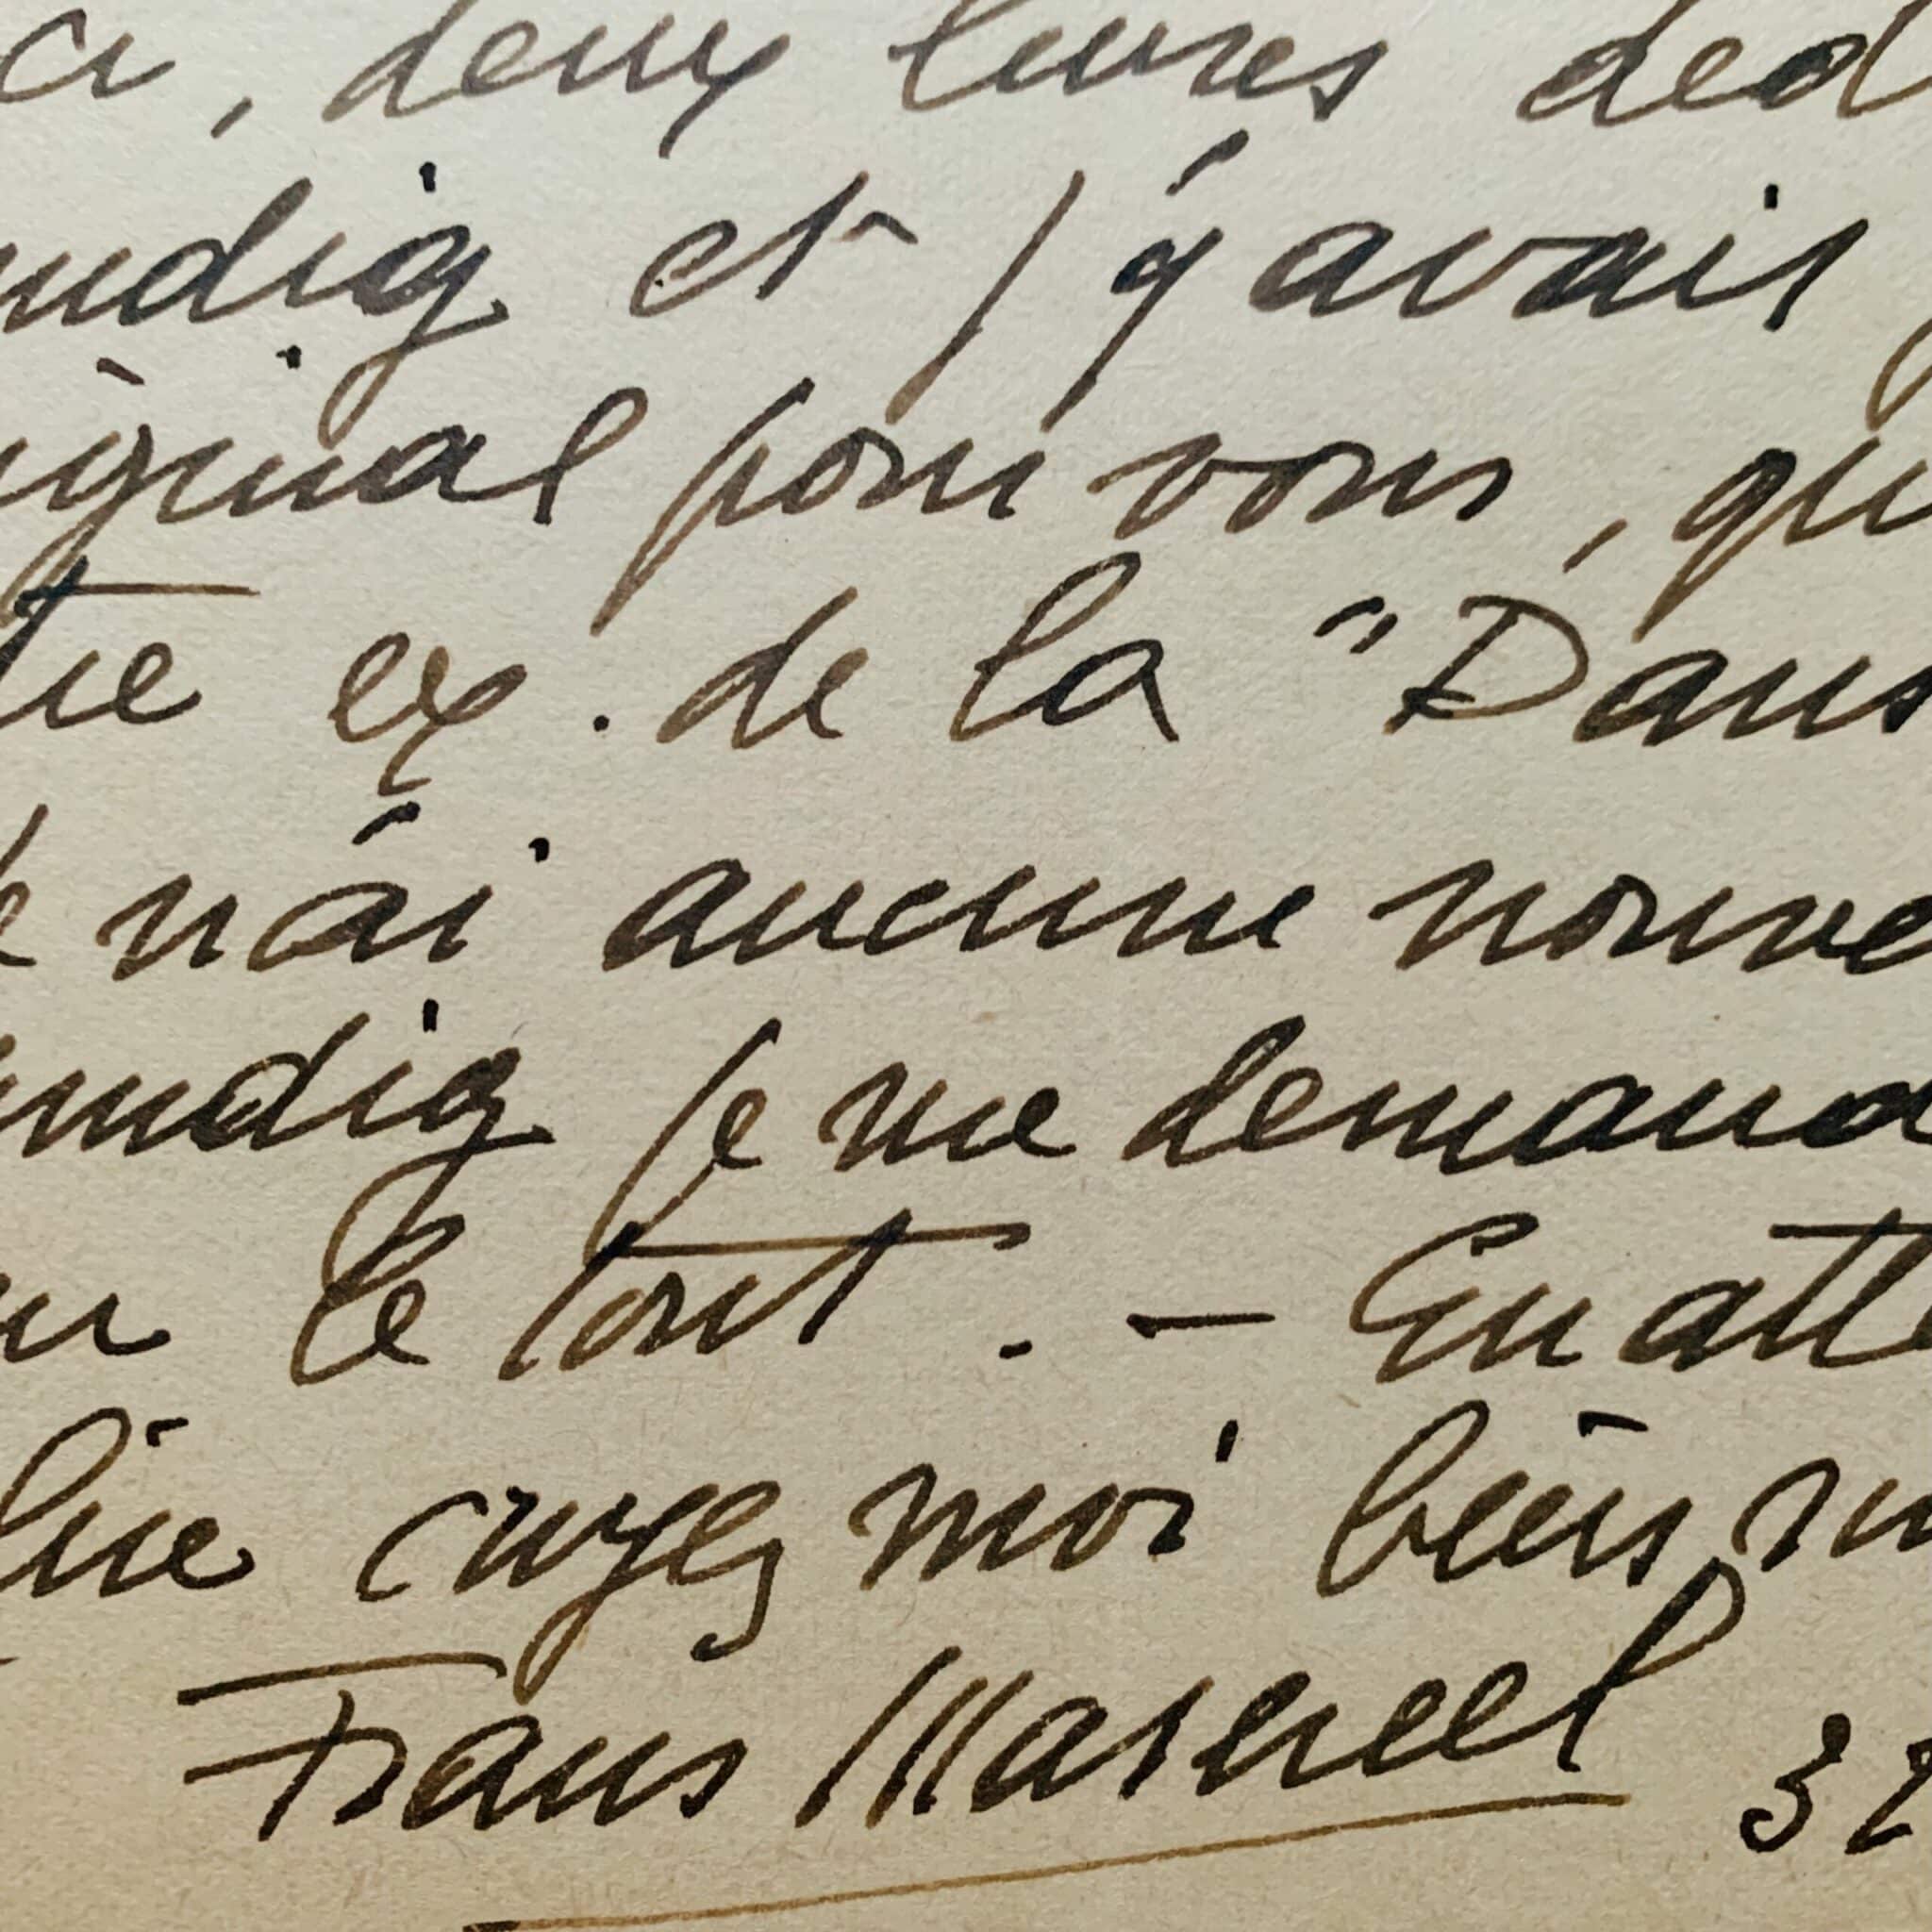 ci, deux livres déd
undig et j'y avais
iginal pour vous, qu
tre ex. de la "Dans
e n'ai aucune nouve
undig je me demand
ur le tout. — En atte
lire croyez moi bien
Frans Masereel 32